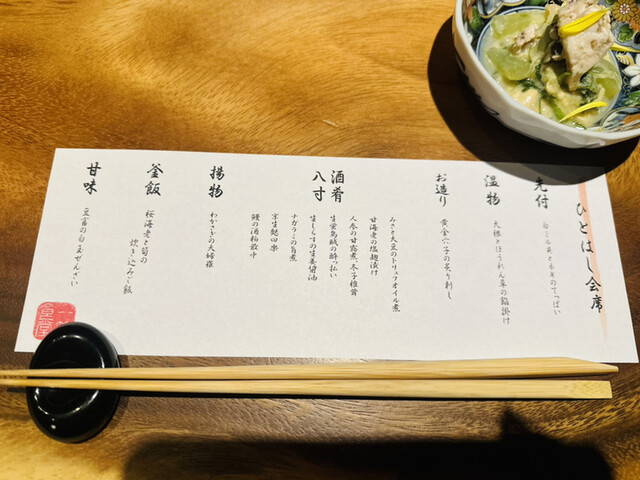 ひとはし会席
先付
白ミル貝とネギのてっぱい
温物
大根とほうれん草の餡掛け
お造り
黄金穴子の炙り刺し
酒肴
八寸
みさと大豆のトリュフオイル煮
甘海老の塩麹漬け
人参の甘露煮、木子椎茸
生蛍烏賊の酔っ払い
生しらすの生姜醤油
ナガラミの旨煮
京生麩田楽
鰻の酒粕最中
揚物
わかさぎの夫婦揚
釜飯
桜海老と筍の
炊き込みご飯
甘味
豆富の白玉ぜんざい
食堂